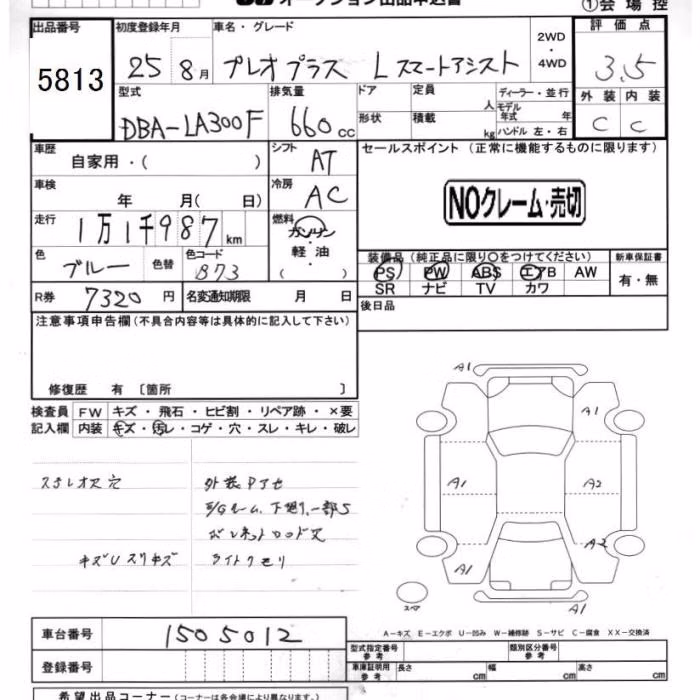 オークション出品申込書
①会場控
出品番号 初度登録年月 車名・グレード 2WD・4WD 評価点
5813 25 8月 プレオプラス Lスマートアシスト 3.5
型式 排気量 ドア 定員 人 ディーラー・並行 外装 内装
DBA-LA300F 660cc 形状 積載 kg モデル年式 年 ハンドル 左・右 C C
車歴 自家用・( ) シフト AT セールスポイント (正常に機能するものに限ります)
車検 年 月( 日) 冷房 AC NOクレーム・売切
走行 1万1千987km 燃料 ガソリン・軽油
色 ブルー 色替 色コード B73 装備品 (純正品に限り○をつけてください) 新車保証書
PS PW ABS エアB AW 有・無
SR ナビ TV カワ
R券 7320円 名変通知期限 月 日 後日品
注意事項申告欄 (不具合内容等は具体的に記入して下さい)
修復歴 有 〔箇所 〕
検査員 FW キズ・飛石・ヒビ割・リペア跡・×要
記入欄 内装 キズ・汚レ・コゲ・穴・スレ・キレ・破レ
A1
A1
A1 A2
A2
A1
A1
外装Pアセ
下廻り一部S
キズUスリキズ ライトクモリ
スペア
A-キズ E-エクボ U-凹み W-補修跡 S-サビ C-腐食 XX-交換済
車台番号 1505012 型式指定番号 参考 類別区分番号 参考
登録番号 車庫証明用 参考 長さ cm 幅 cm 高さ cm
希望出品コーナー (コーナーは各会場により異なります。)